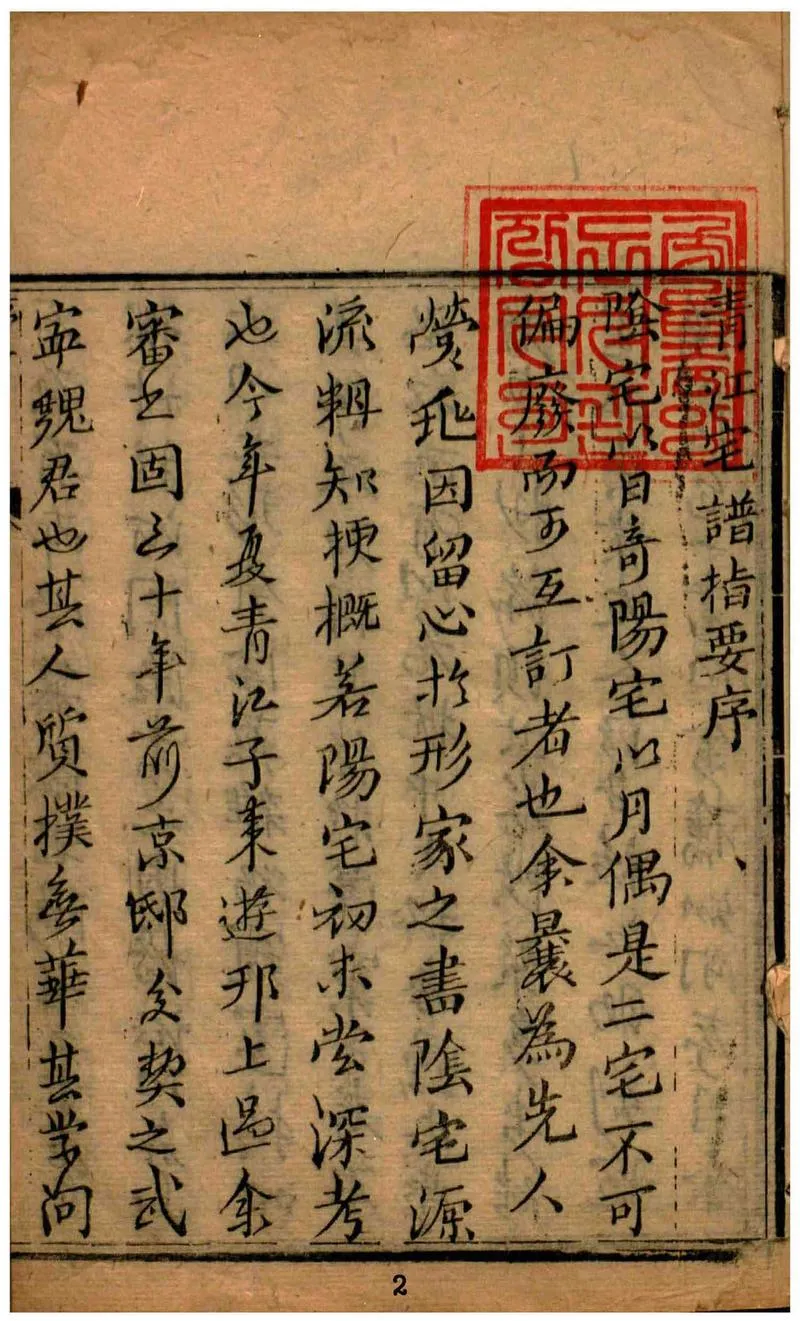 青江宅譜指要序
陰宅以日奇陽宅以月偶是二宅不可
偏廢而可互訂者也余曩為先人
塋兆因留心於形家之書陰宅源
流輯知梗概若陽宅初未嘗深考
也今年夏青江子来遊邗上過余
審之固三十年前京邸交契之武
寧魏君也其人質樸無華其学问
2